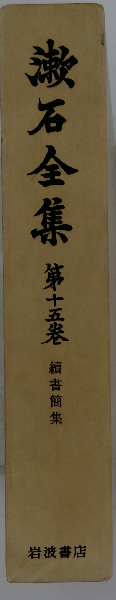 漱石全集
第十五巻
續書簡集
岩波書店